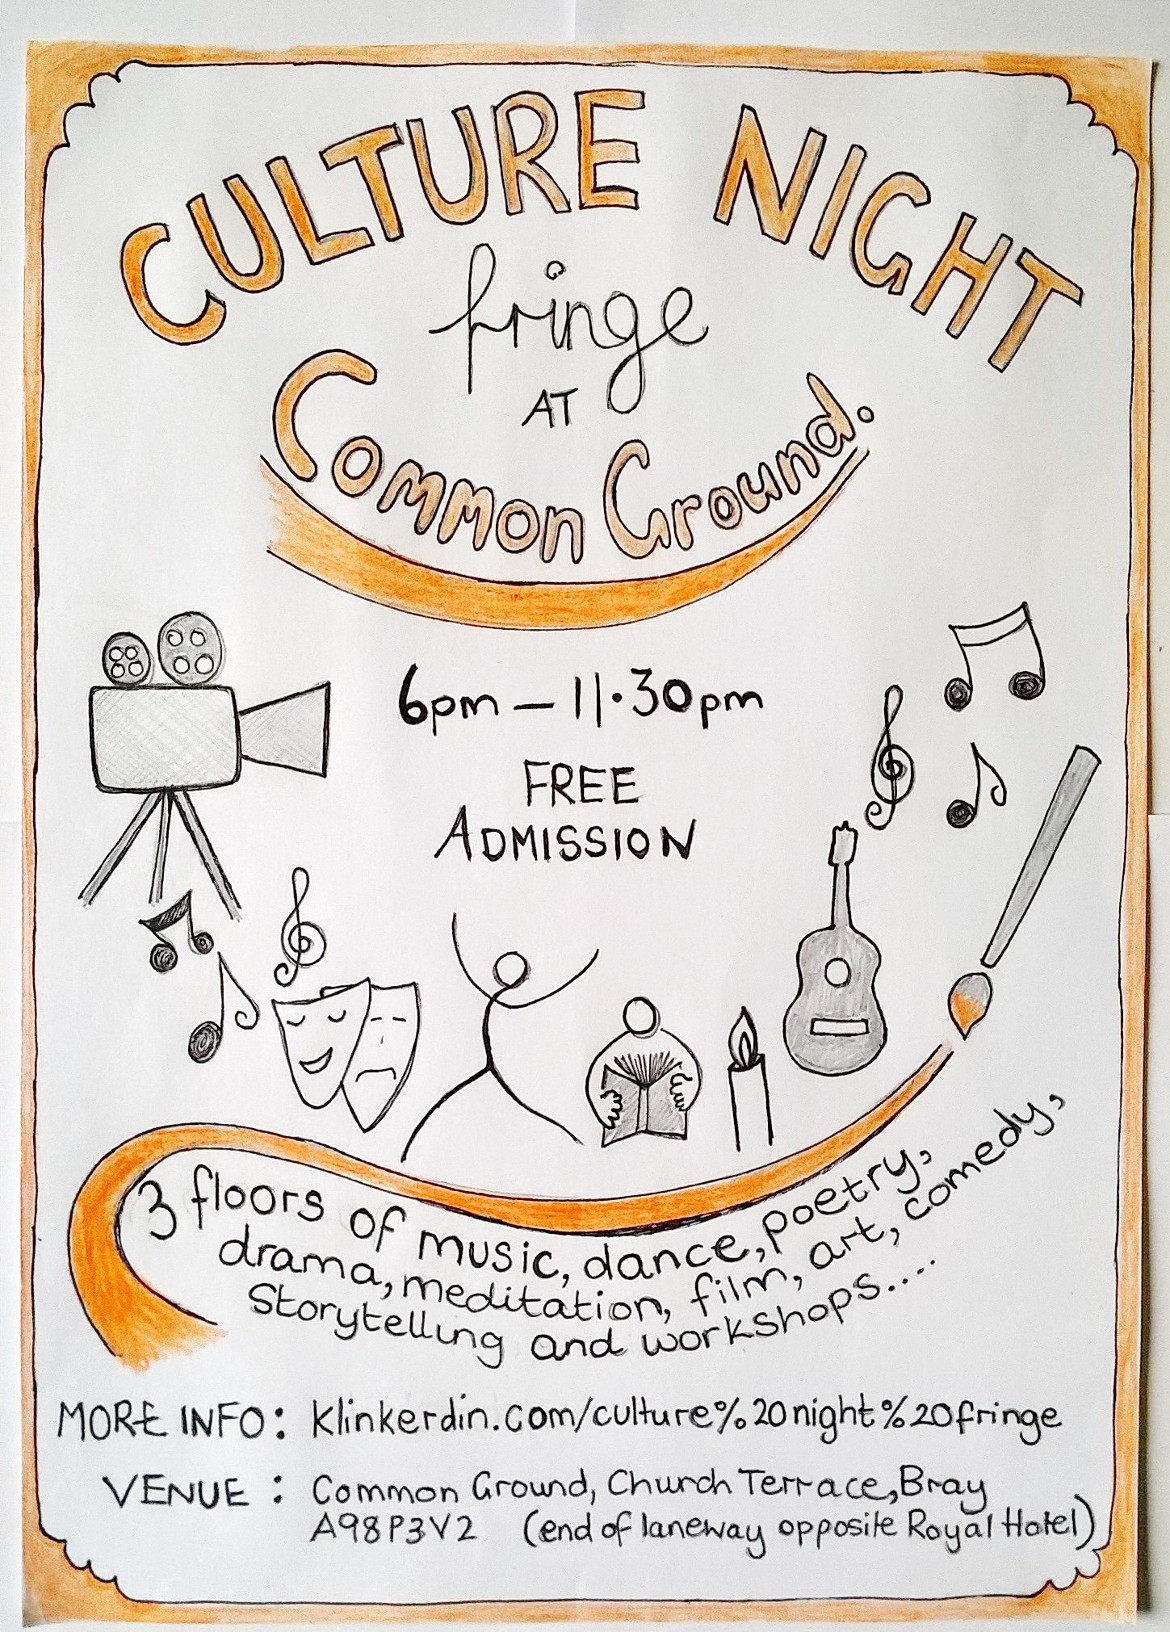 CULTURE NIGHT
fringe
AT
Common Ground.
6pm – 11.30pm
FREE
ADMISSION
3 floors of music, dance, poetry,
drama, meditation, film, art, comedy,
Storytelling and workshops....
MORE INFO: klinkerdin.com/culture%20night%20fringe
VENUE : Common Ground, Church Terrace, Bray
A98P3V2 (end of laneway opposite Royal Hotel)